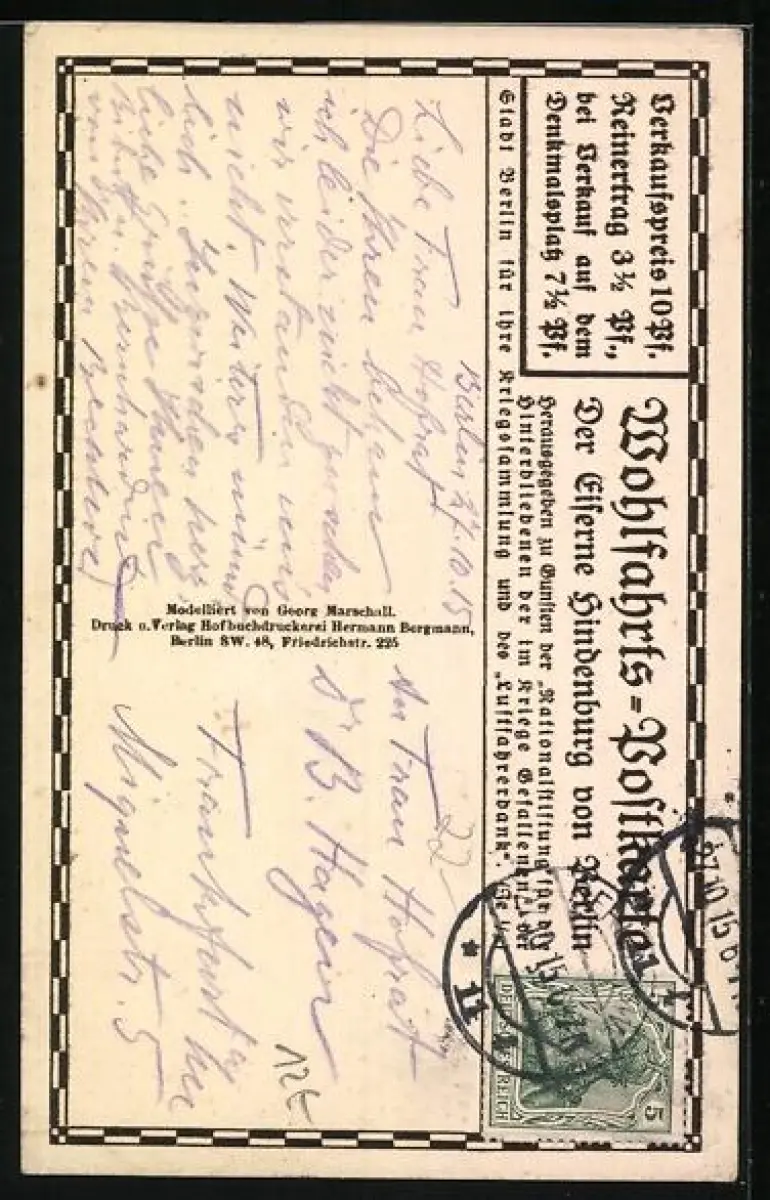 Verkaufspreis 10 Pf.
Reinertrag 3½ Pf.,
bei Verkauf auf dem
Denkmalsplatz 7½ Pf.
Wohlfahrts=Postkarte
Der Eiserne Hindenburg von Berlin
Herausgegeben zu Gunsten der „Nationalstiftung für die
Hinterbliebenen der im Kriege Gefallenen", der
Stadt Berlin für ihre Kriegssammlung und des „Luftfahrerdank".
Berlin 27.10.15
Liebe Frau Hofrat
Die Ihren bekam
ich leider nicht
wir verstanden uns
nicht. Weiteres
liebe Grüße Ihnen
von Ihrem
Modelliert von Georg Marschall.
Druck u. Verlag Hofbuchdruckerei Hermann Bergmann,
Berlin SW. 48, Friedrichstr. 225
22
An Frau Hofrat
Dr B. Hagen
Frankfurt a/
Miquelstr. 5
12€
27.10.15
11
DEUTSCHES REICH
5